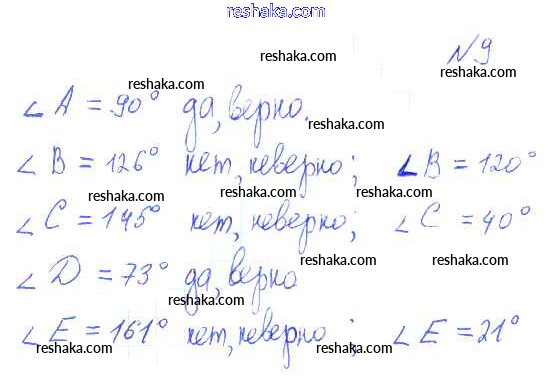 reshaka.com
№9
reshaka.com
reshaka.com
∠A = 90° да, верно.
reshaka.com
∠B = 126° нет, неверно; ∠B = 120°
reshaka.com reshaka.com
∠C = 145° нет, неверно; ∠C = 40°
reshaka.com reshaka.com
∠D = 73° да, верно
reshaka.com
∠E = 161° нет, неверно; ∠E = 21°
reshaka.com reshaka.com reshaka.com